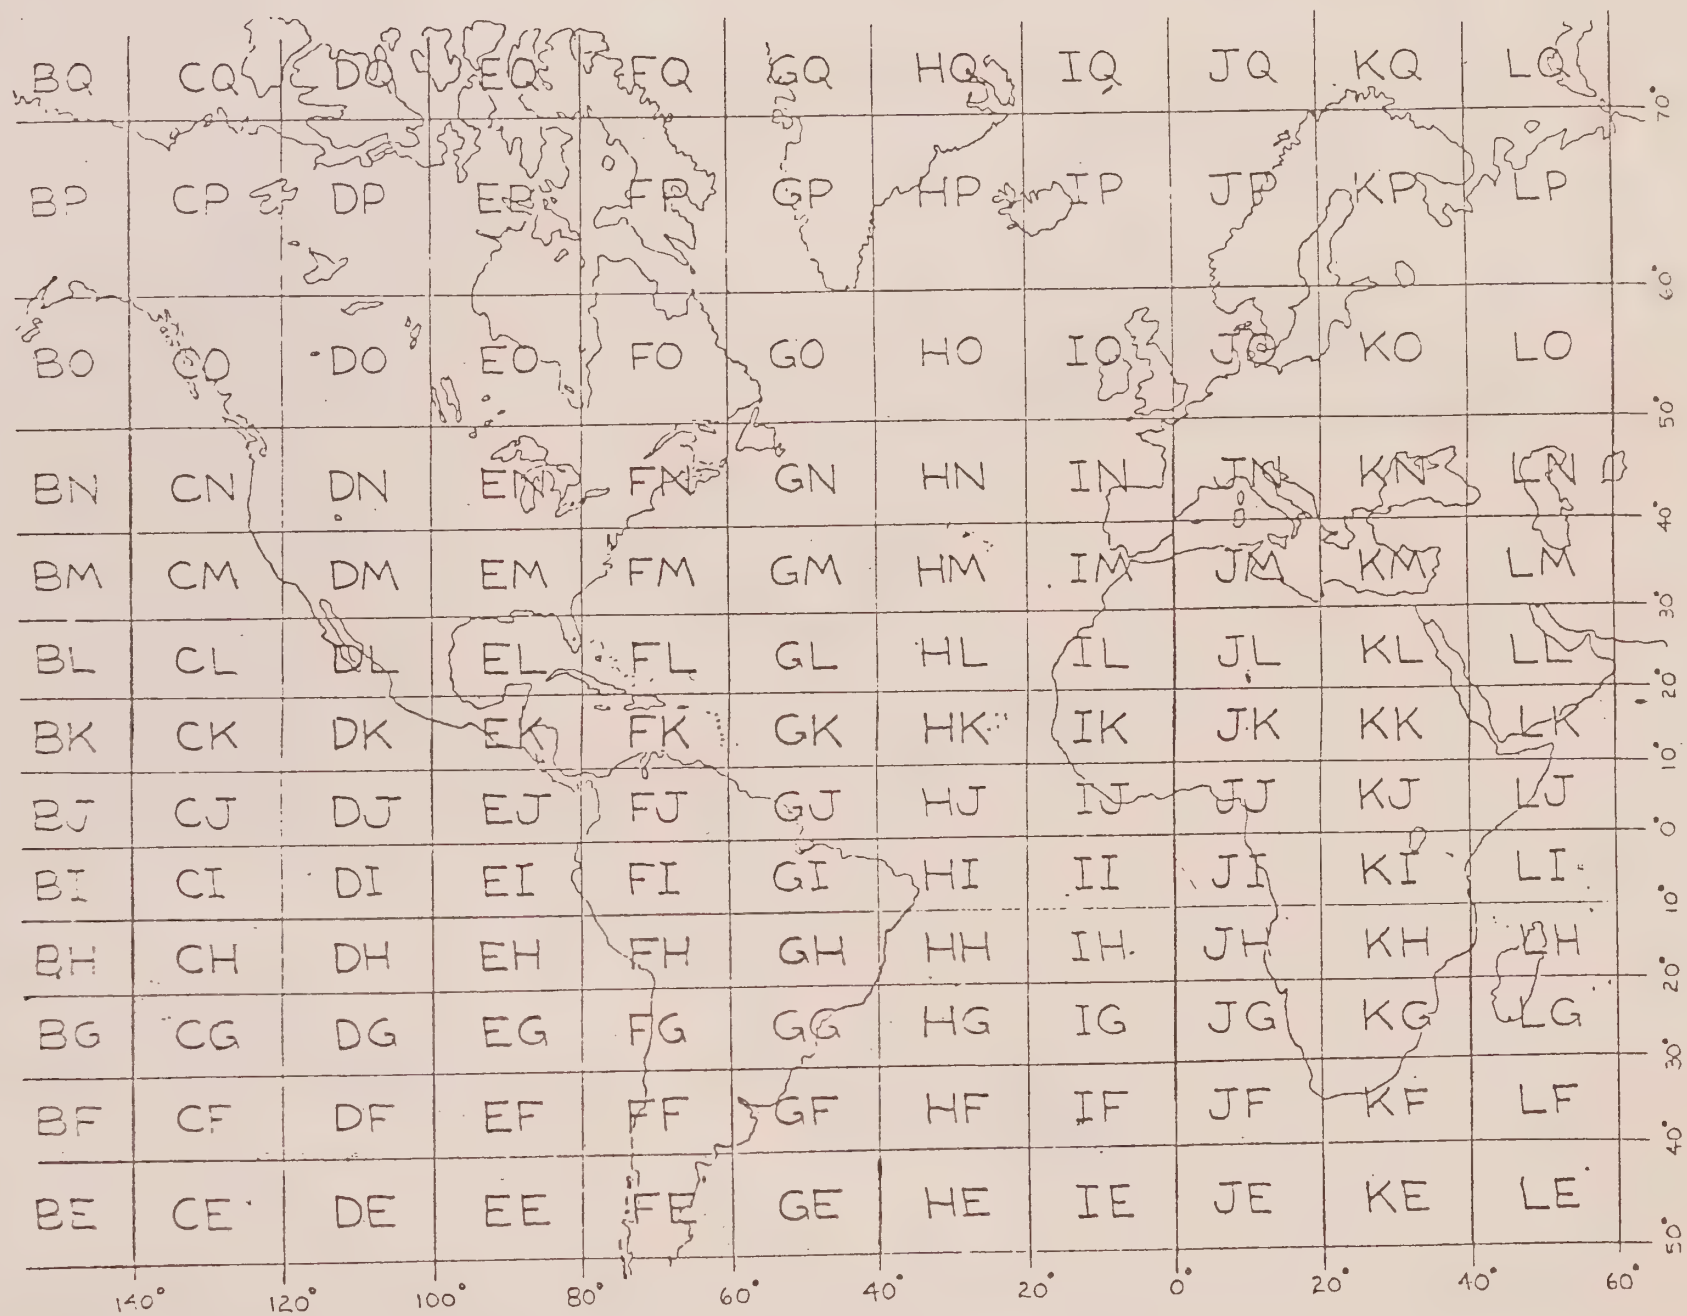 BQ CQ DQ EQ FQ GQ HQ IQ JQ KQ LQ
70°
BP CP DP EP FP GP HP IP JP KP LP
60°
BO CO DO EO FO GO HO IO JO KO LO
50°
BN CN DN EN FN GN HN IN JN KN LN
40°
BM CM DM EM FM GM HM IM JM KM LM
30°
BL CL DL EL FL GL HL IL JL KL LL
20°
BK CK DK EK FK GK HK IK JK KK LK
10°
BJ CJ DJ EJ FJ GJ HJ IJ JJ KJ LJ
0°
BI CI DI EI FI GI HI II JI KI LI
10°
BH CH DH EH FH GH HH IH JH KH LH
20°
BG CG DG EG FG GG HG IG JG KG LG
30°
BF CF DF EF FF GF HF IF JF KF LF
40°
BE CE DE EE FE GE HE IE JE KE LE
50°
140° 120° 100° 80° 60° 40° 20° 0° 20° 40° 60°